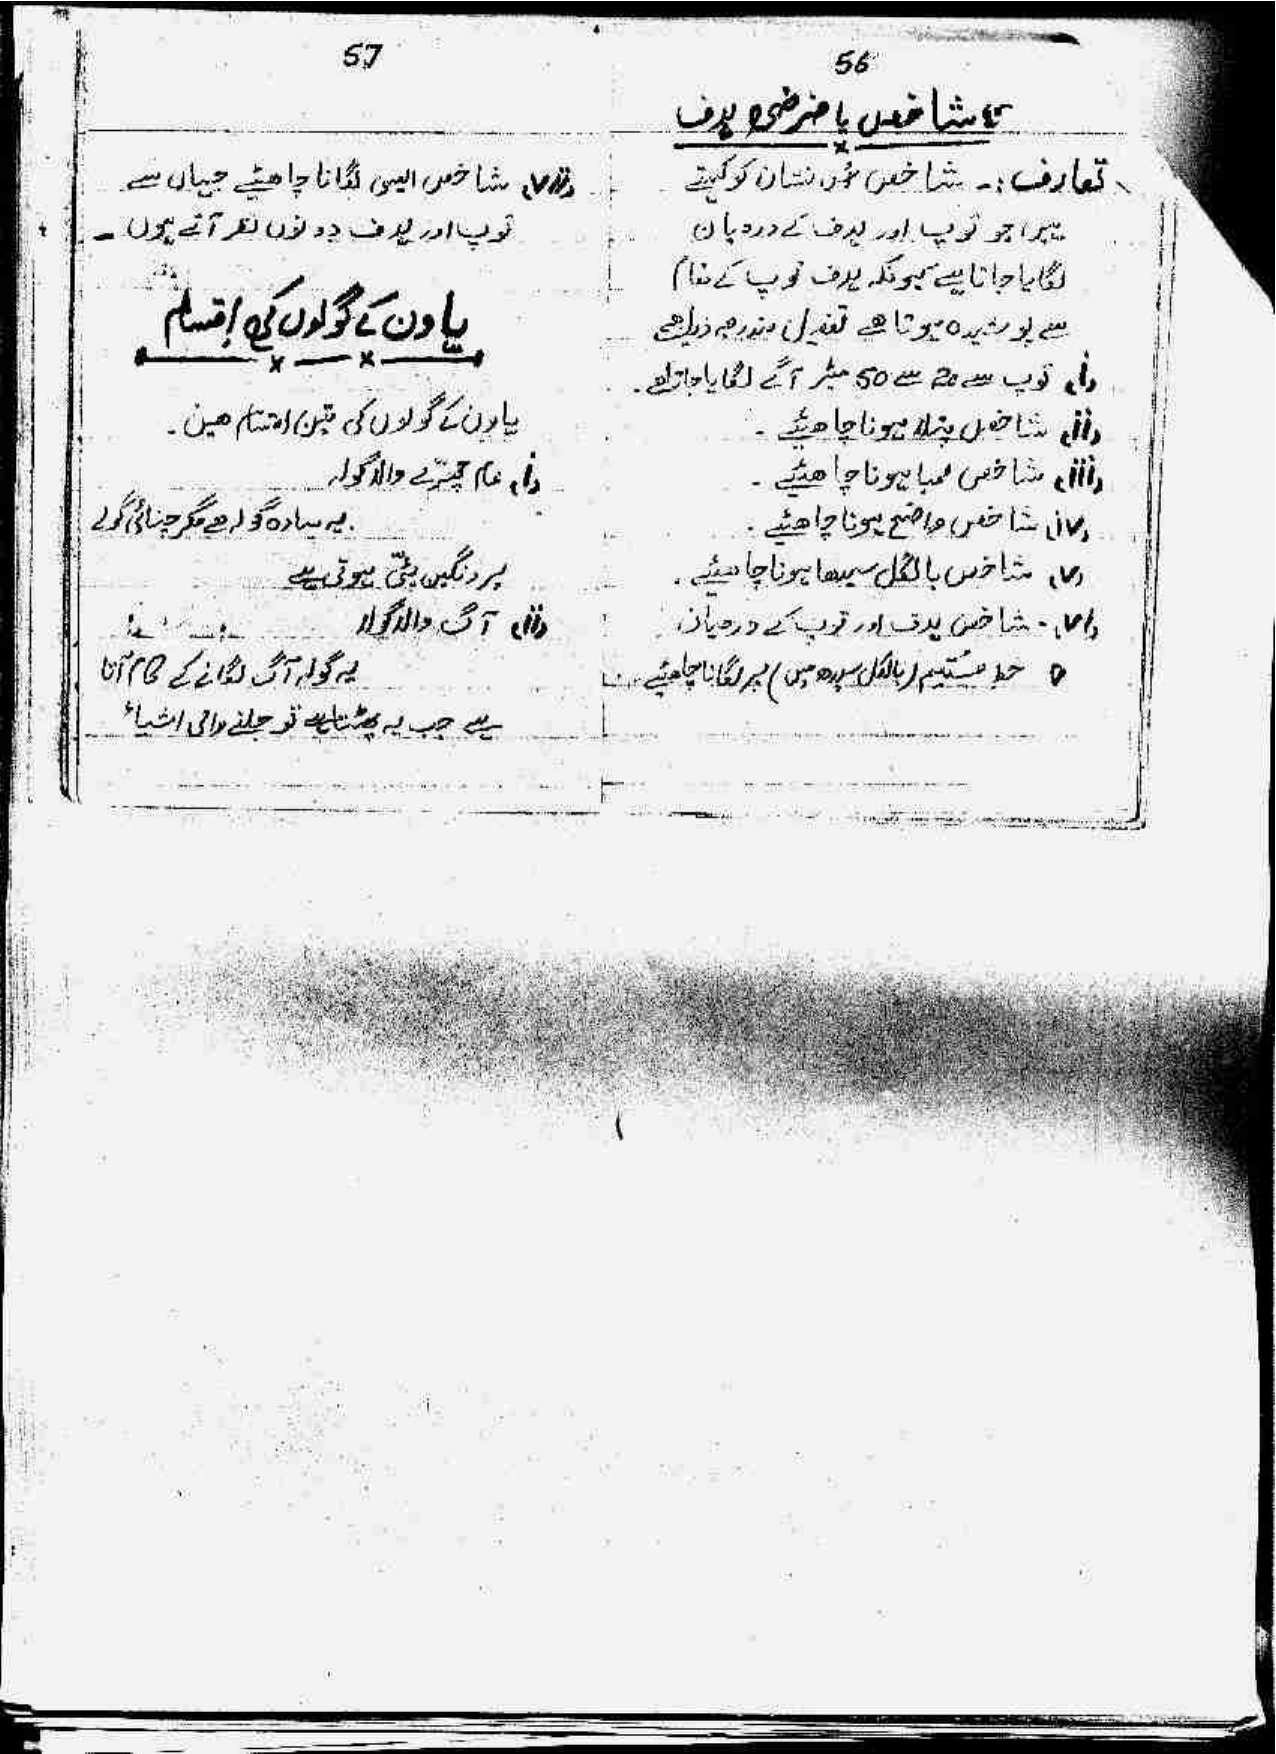 56
شاخص یا فرضی ہدف
تعارف :۔ شاخص اس نشان کو کہتے
ہیں جو توپ اور ہدف کے درمیان
لگایا جاتا ہے کیونکہ ہدف توپ کے مقام
سے پوشیدہ ہوتا ھے تفصیل مندرجہ ذیل ھے
(i) توپ سے 20 سے 50 میٹر آگے لگایا جاتا ھے۔
(ii) شاخص پتلا ہونا چاھئیے ۔
(iii) شاخص لمبا ہونا چاھئیے ۔
(iv) شاخص واضح ہونا چاھئیے ۔
(v) شاخص بالکل سیدھا ہونا چاھئیے ۔
(vi)۔ شاخص ہدف اور توپ کے درمیان
خط مستقیم (بالکل سیدھ میں) پر لگانا چاھئیے ۔
57
(vii) شاخص ایسی لگانا چاھئیے جہاں سے
توپ اور ہدف دونوں نظر آتے ہوں ۔
ہاون کے گولوں کی اقسام
ہاون کے گولوں کی تین اقسام ھیں ۔
(i) عام چھرّے والا گولہ
یہ سادہ گولہ ھے مگر چنائی گولے
پر رنگین پٹّی ہوتی ہے
(ii) آگ والا گولا
یہ گولہ آگ لگانے کے کام آتا
ہے جب یہ پھٹتا ہے تو جلنے والی اشیاء